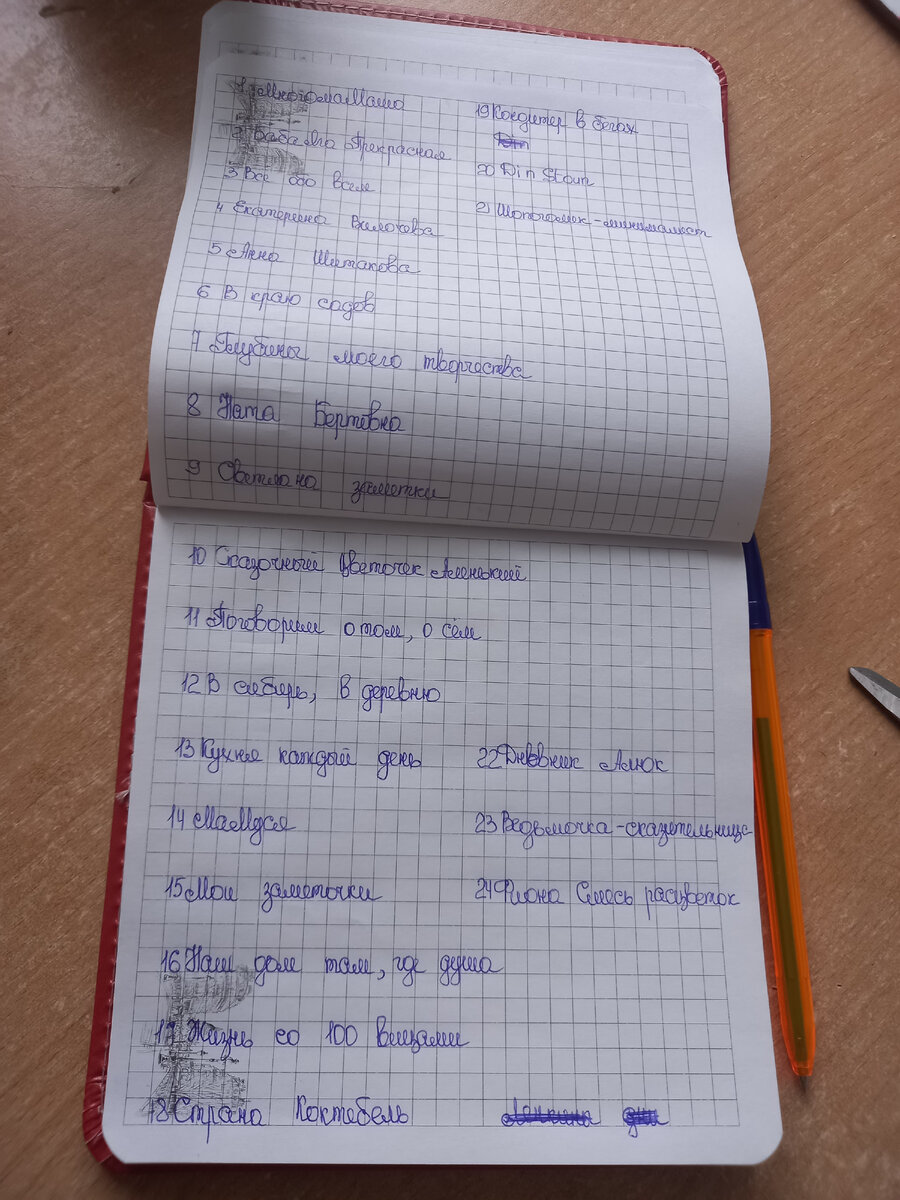 1 МногомаМашо
2 Баба Яга Прекрасная
3 Всё обо всём
4 Екатерина Валюхова
5 Анна Шестакова
6 В краю садов
7 Глубины моего творчества
8 Ната Бертовна
9 Светлана заметки
19 Кондитер в бегах
20 Din Stoun
21 Шопоголик-минималист
10 Сказочный Цветочек Аленький
11 Поговорим о том, о сём
12 В сибирь, в деревню
13 Кухня каждый день
14 МаМдся
15 Мои заметочки
16 Наш дом там, где душа
17 Жизнь со 100 вещами
18 Страна Коктебель
22 Дневник Алок
23 Ведьмочка-сказительница
24 Фиона Смесь расцветок